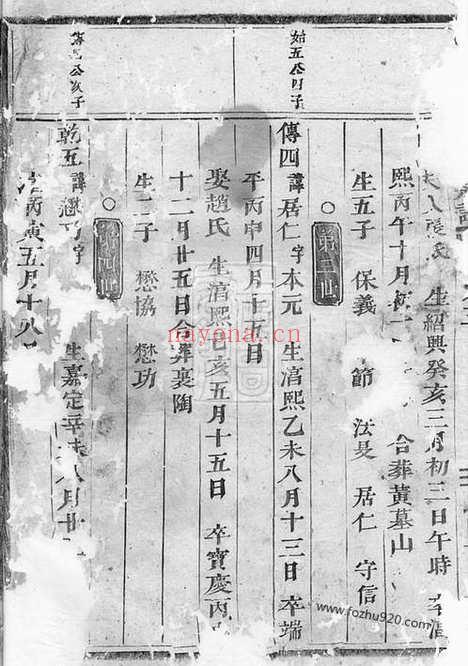 張氏 生紹興癸亥三月初二日午時 卒淳
熙丙午十月初 合葬黃墓山
生五子 保義 節 法旻 居仁 守信
第三世
始五公四子
傳四 諱居仁字本元 生淳熙乙未八月十三日 卒端
平丙申四月十五日
娶趙氏 生淳熙己亥五月十五日 卒寶慶丙
十二月廿五日合葬裏陶
生二子 懋協 懋功
第四世
公次子
乾五 諱懋 字 生嘉定辛未八月十
丙寅五月十八
nayona.cn
www.fozhu920.com